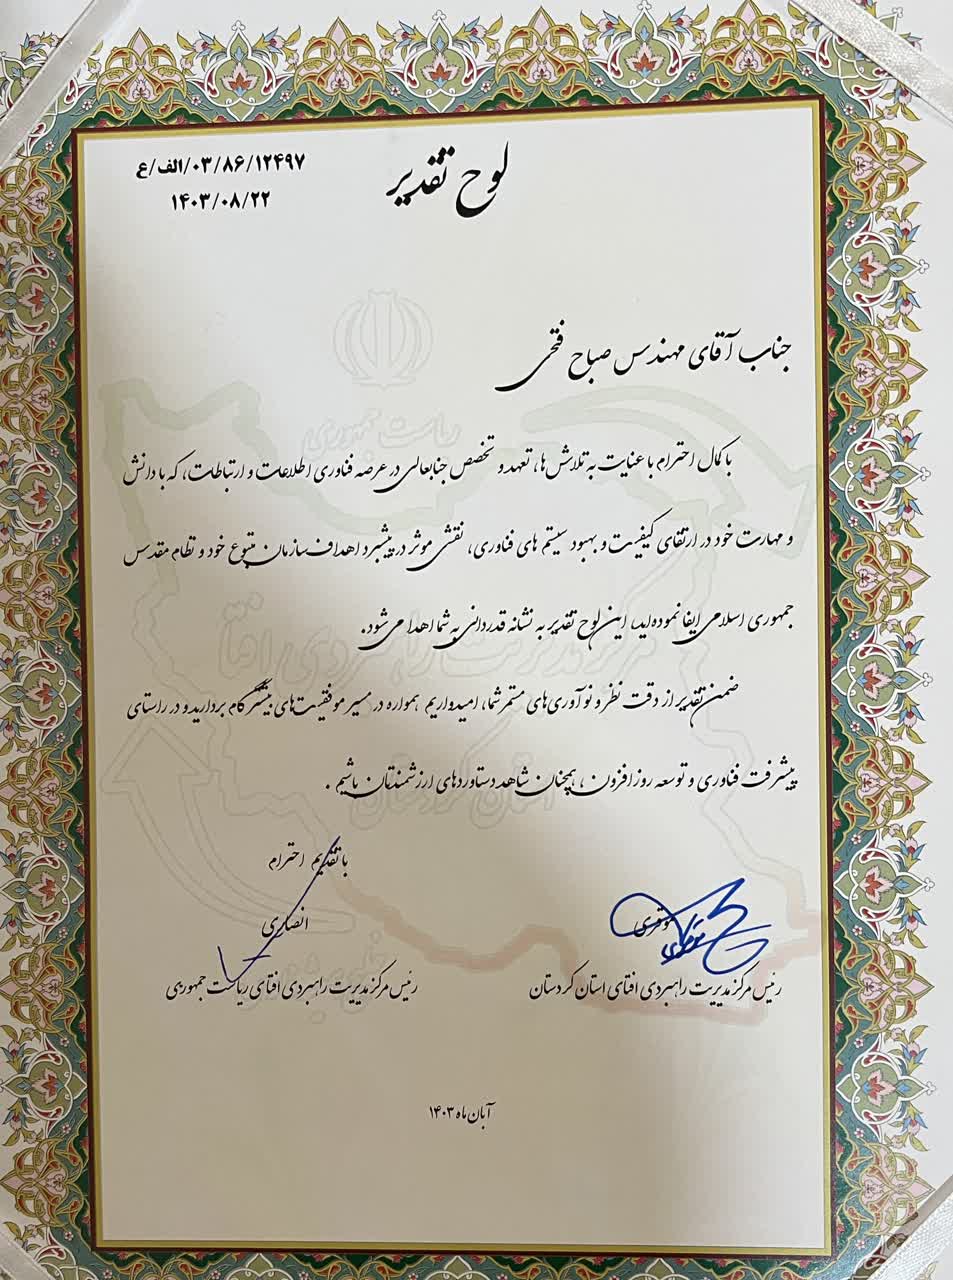 لوح تقدیر
۰۳/۸۶/۱۲۴۹۷/الف/ع
۱۴۰۳/۰۸/۲۲
ریاست جمهوری
جناب آقای مهندس صباح فتحی
با کمال احترام با عنایت به تلاش‌ها، تعهد و تخصص جنابعالی در عرصه فناوری اطلاعات و ارتباطات، که با دانش
و مهارت خود در ارتقای کیفیت و بهبود سیستم های فناوری، نقشی موثر در پیشبرد اهداف سازمان متبوع خود و نظام مقدس
جمهوری اسلامی ایفا نموده‌اید، این لوح تقدیر به نشانه قدردانی به شما اهدا می‌شود.
مرکز مدیریت راهبردی افتا
ضمن تقدیر از دقت نظر و نوآوری‌های مستمر شما، امیدواریم همواره در مسیر موفقیت‌های بیشتر گام بردارید و در راستای
استان کردستان
پیشرفت فناوری و توسعه روزافزون، همچنان شاهد دستاوردهای ارزشمندتان باشیم.
با تقدیم احترام
موقری
انصاری
رئیس مرکز مدیریت راهبردی افتای استان کردستان
رئیس مرکز مدیریت راهبردی افتای ریاست جمهوری
آبان ماه ۱۴۰۳